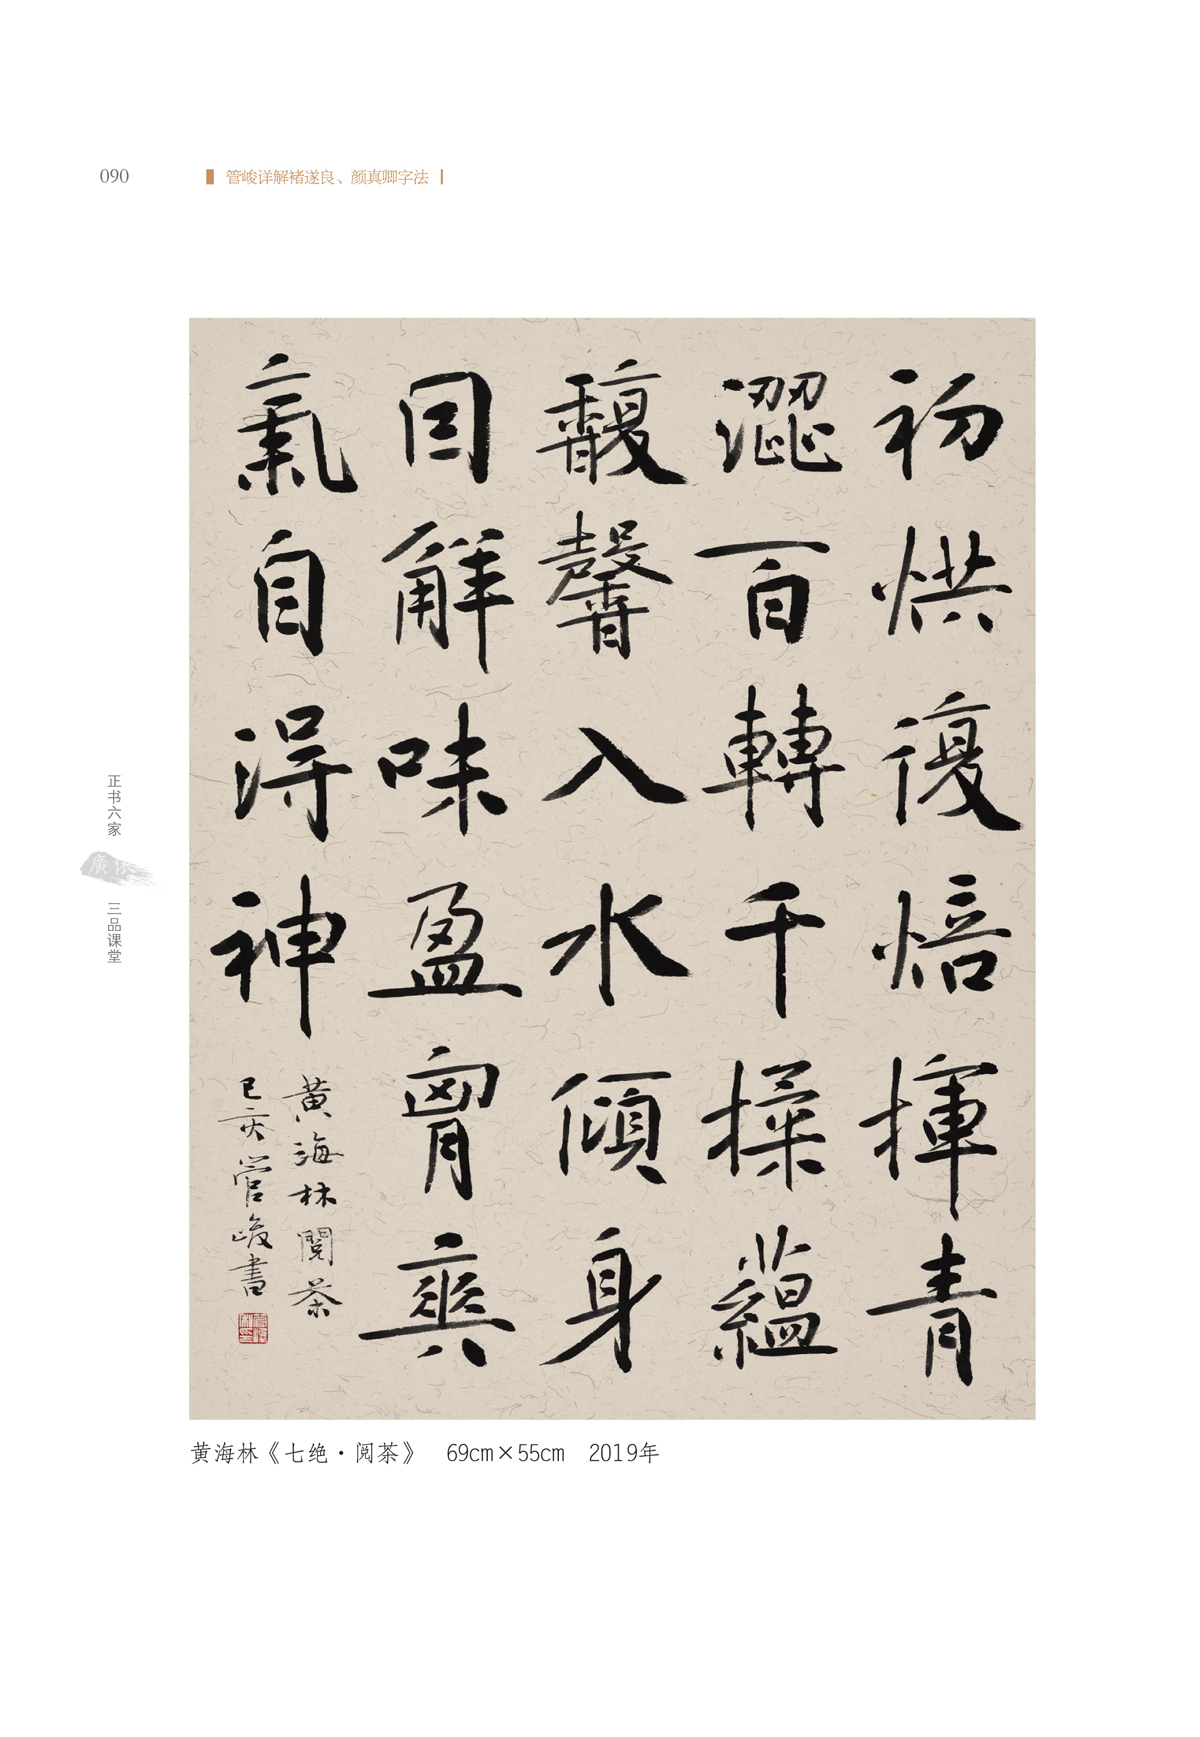 090
管峻详解褚遂良、颜真卿字法
初烘復焙揮青
澀百轉千操蘊
馥馨入水傾身
目解味盈胷爽
氣自得神
黄海林閱茶
己亥管峻書
正书六家
三品课堂
黄海林《七绝·阅茶》 69cm×55cm 2019年